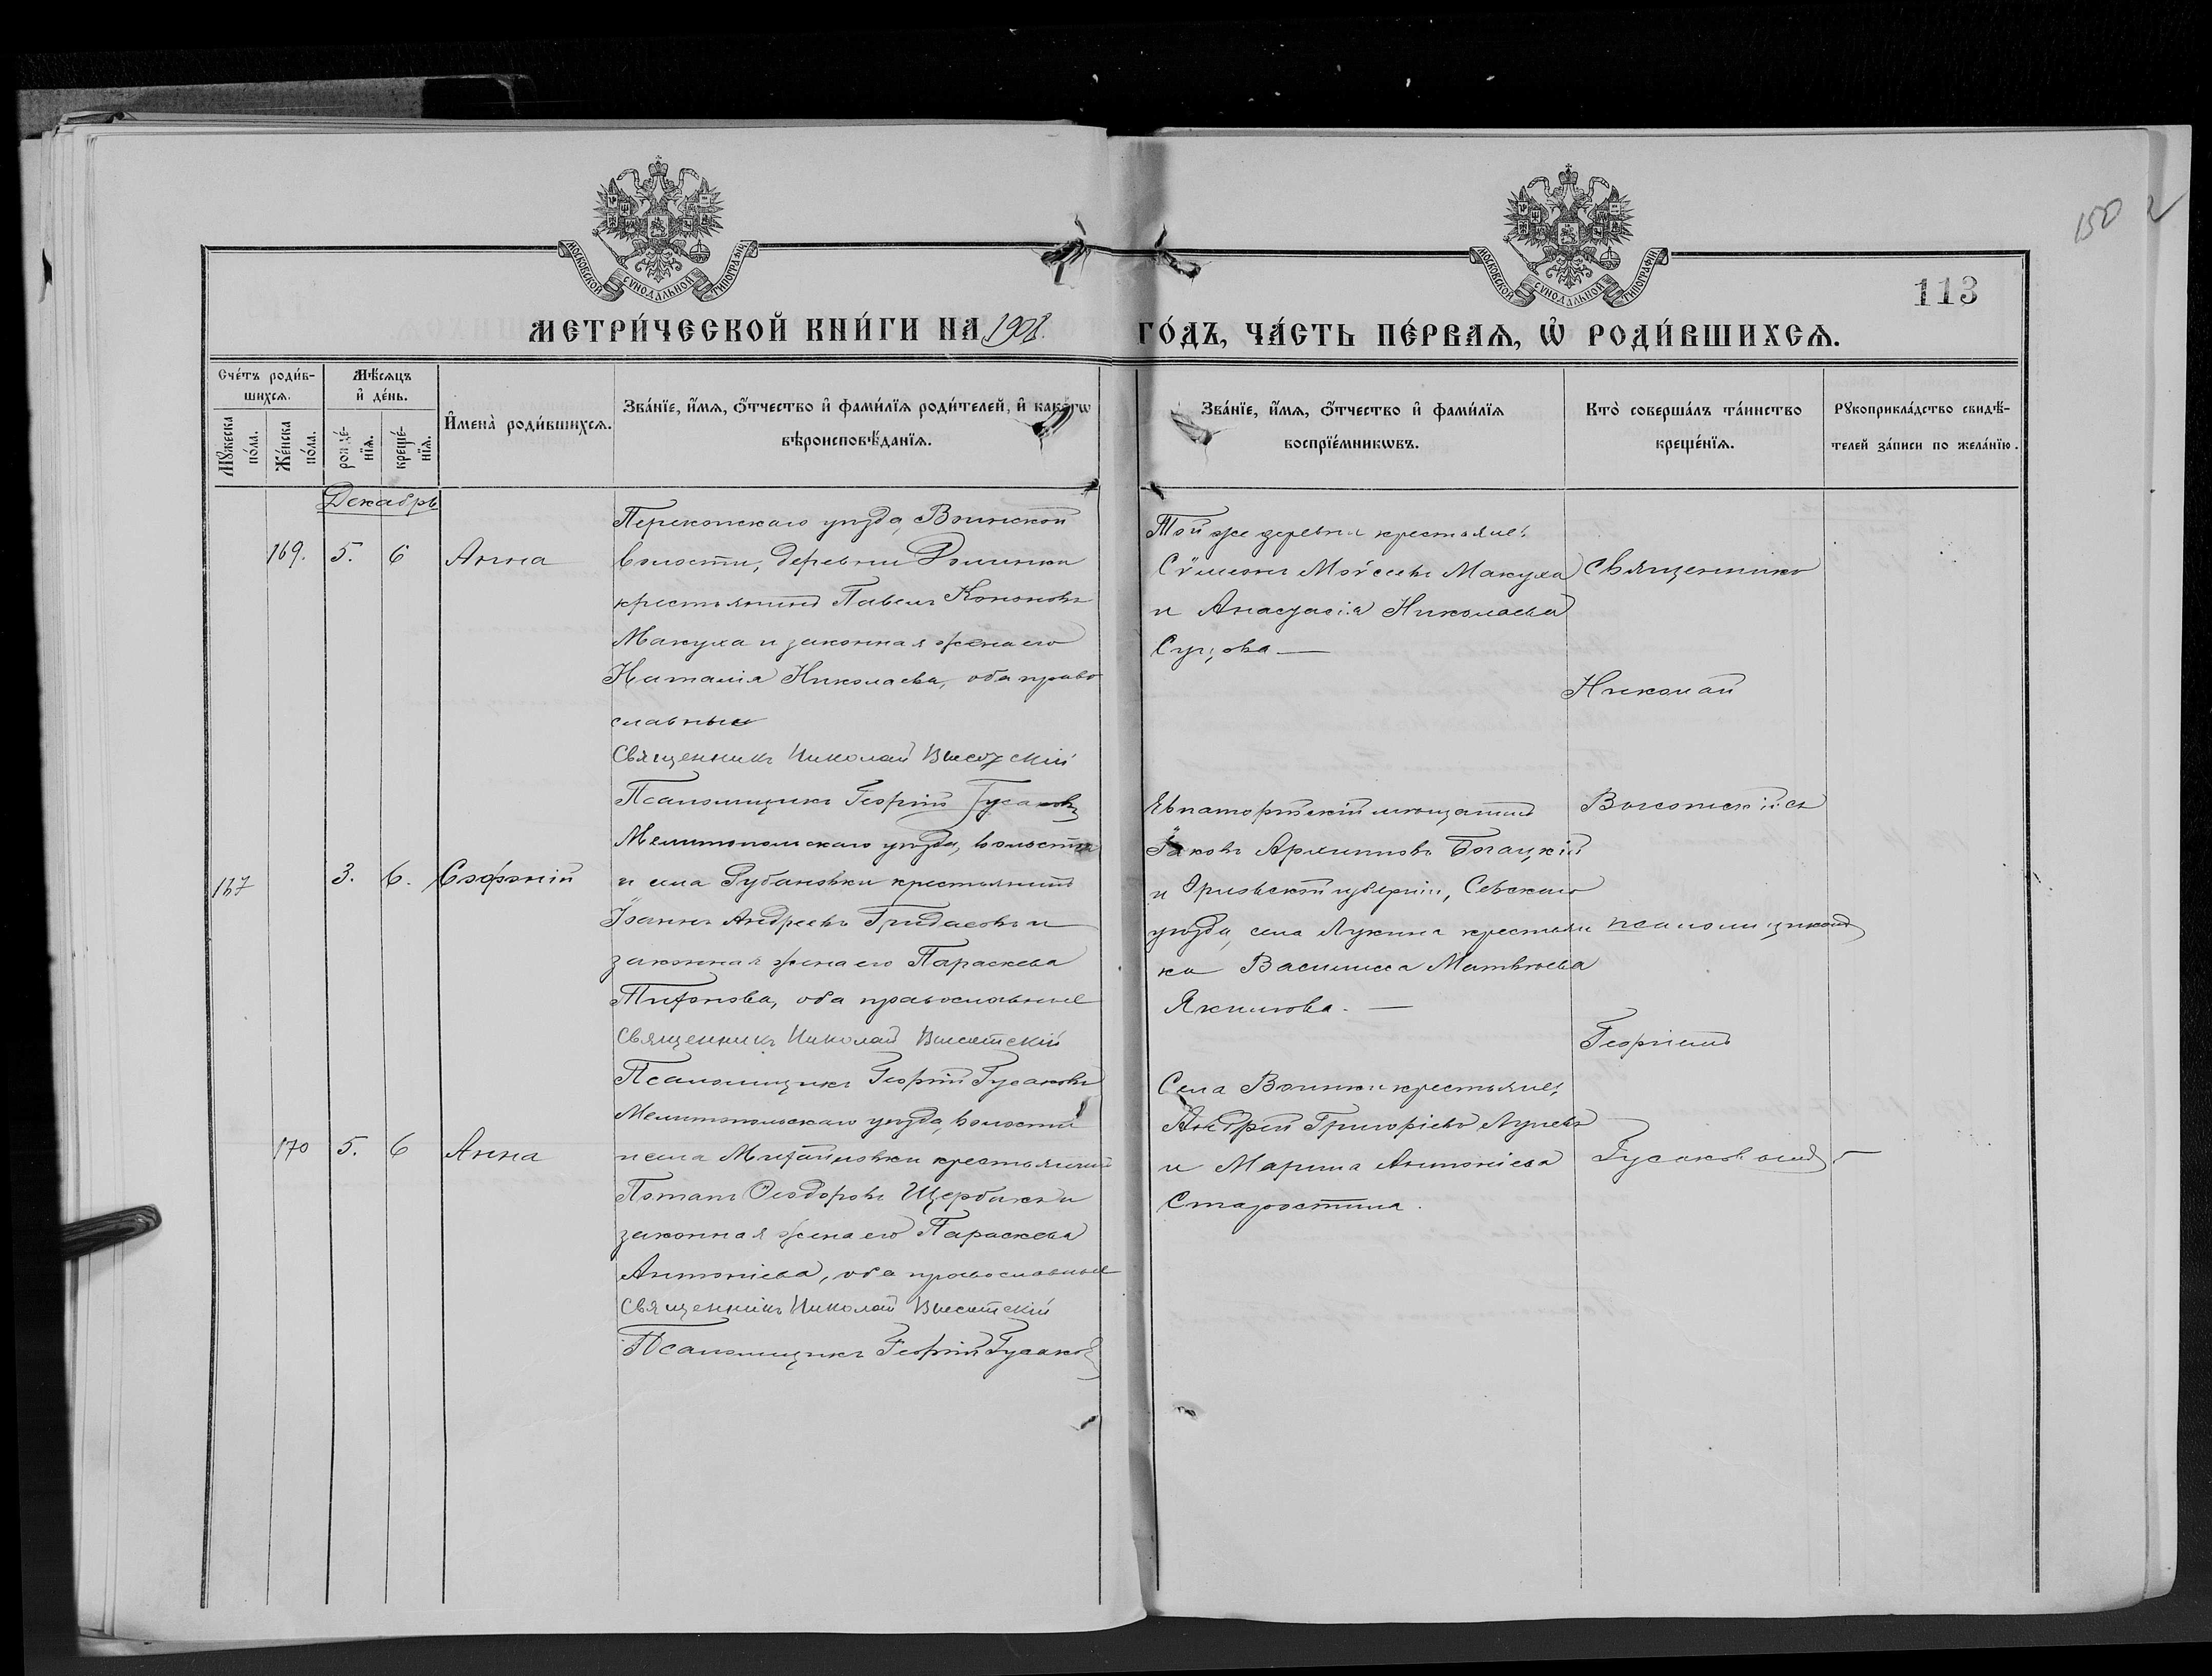 150
113
МОСКОВСКОЙ СѴНОДАЛЬНОЙ ТИПОГРАФІИ
МОСКОВСКОЙ СѴНОДАЛЬНОЙ ТИПОГРАФІИ
МЕТРИ́ЧЕСКОЙ КНИ́ГИ НА 1908. ГО́ДЪ, ЧА́СТЬ ПЕ́РВАѦ, Ѡ҆ РОДИ́ВШИХСѦ.
Сче́тъ роди́в-
шихсѧ.
Мꙋ́жеска по́ла.
Же́нска по́ла.
Мѣ́сѧцъ
и҆ де́нь.
рожде́-
нїѧ.
креще́-
нїѧ.
И҆мена̀ роди́вшихсѧ.
Зва́нїе, и҆́мѧ, ѻ҆́тчество и҆ фамѝлїѧ роди́телей, и҆ како́гѡ
вѣроисповѣ́данїѧ.
Зва́нїе, и҆́мѧ, ѻ҆́тчество и҆ фамѝлїѧ
воспрїе́мникѡвъ.
Кто̀ соверша́лъ та́инство
креще́нїѧ.
Рꙋкоприкла́дство свидѣ́-
телей за́писи по жела́нїю.
Декабрь
169. 5. 6 Анна
Перекопскаго уѣзда, Воинской
волости, деревни
крестьянинъ Павелъ Кононовъ
Макуха и законная жена его
Наталія Николаева, оба право
славные
Священникъ Николай Высотскій
Псаломщикъ Георгій Гусаковъ
Той же деревни крестьяне:
Сѵмеонъ Моѵсеевъ Макуха
и Анастасія Николаева
Сущова —
Священникъ
Николай
Высотскій съ
псаломщикомъ
Георгіемъ
Гусаковымъ
167 3. 6. Софоній
Мелитопольскаго уѣзда, волости
и села Рубановки крестьянинъ
Іоаннъ Андреевъ Гридасовъ и
законная жена его Параскева
Тихонова, оба православные
Священникъ Николай Высотскій
Псаломщикъ Георгій Гусаковъ
Евпаторійскій мѣщанинъ
Іаковъ Архиповъ Богацкій
и Орловской губерніи, Севскаго
уѣзда, села Лукина крестьян
ка Василисса Матвѣева
Якимова. —
170 5. 6 Анна
Мелитопольскаго уѣзда, волости
и села Михайловки крестьянинъ
Потапъ Ѳеодоровъ Щербакъ и
законная жена его Параскева
Антоніева, оба православные
Священникъ Николай Высотскій
Псаломщикъ Георгій Гусаковъ
Села Воинки крестьяне,
Андрей Григоріевъ
и Марина Антоніева
Старостина.